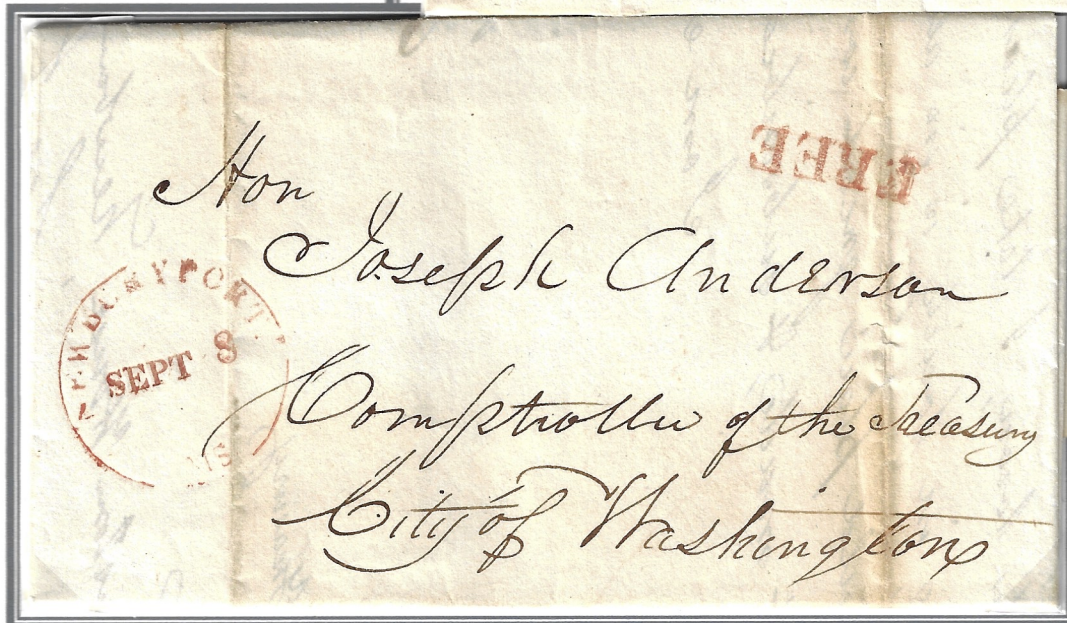 FREE
Hon
Joseph Anderson
NEWBURYPORT
SEPT 8
MS
Comptroller of the Treasury
City of Washington